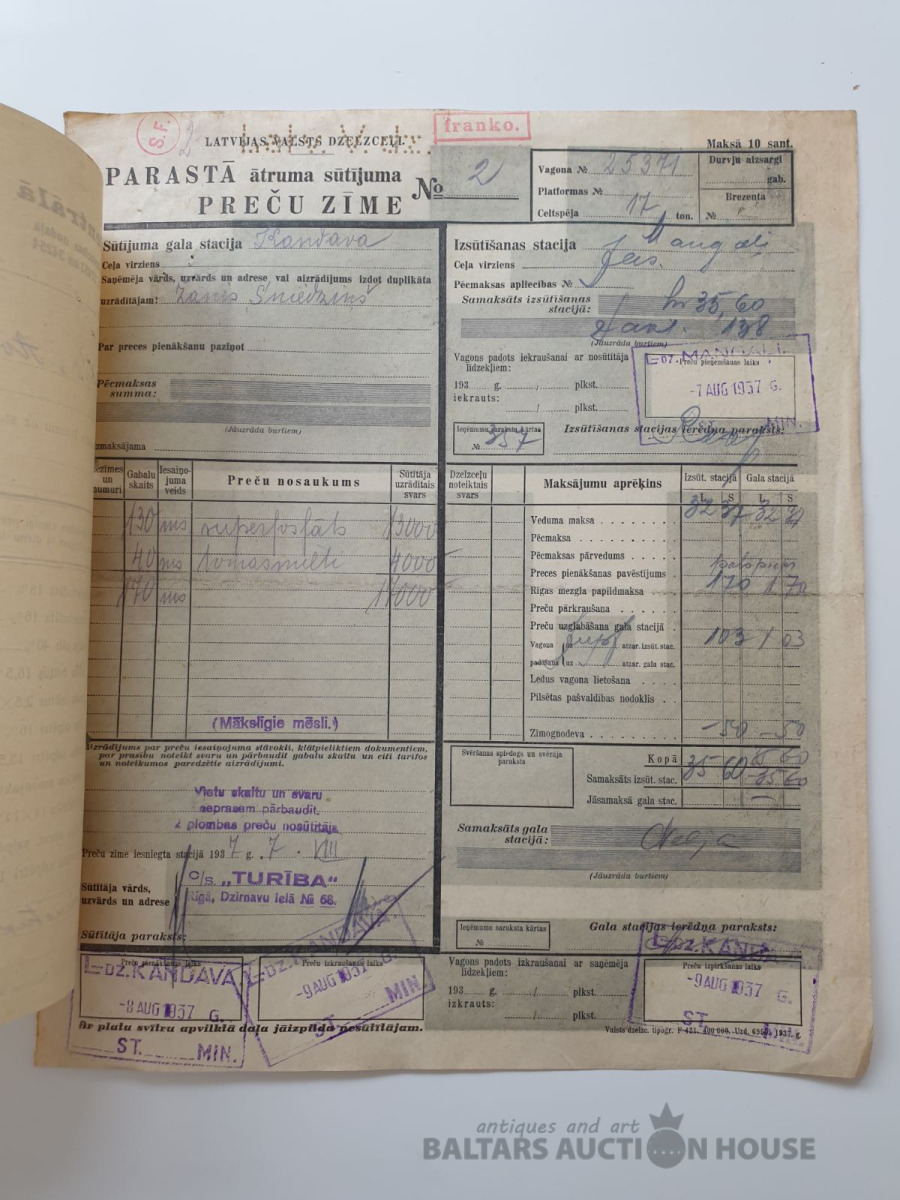 S.F.
franko.
LATVIJAS VALSTS DZELZCEĻI.
Maksā 10 sant.
PARASTĀ ātruma sūtījuma
PREČU ZĪME
№ 2
Vagona № 25371
Platformas №
Celtspēja 17 ton.
Durvju aizsargi
gab.
Brezenta
№
Sūtījuma gala stacija Kandava
Ceļa virziens
Saņēmēja vārds, uzvārds un adrese, vai aizrādījums izdot duplikāta
uzrādītājam:
Par preces pienākšanu paziņot
Pēcmaksas
summa:
(Jāuzrāda burtiem)
Izmaksājama
Izsūtīšanas stacija Mangaļi
Ceļa virziens
Pēcmaksas apliecības №
Samaksāts izsūtīšanas
stacijā:
35,60
138
(Jāuzrāda burtiem)
Vagons padots iekraušanai ar nosūtītāja
līdzekļiem:
193 g. / plkst.
iekrauts: / plkst.
L-DZ. MANGAĻI.
Preču pieņemšanas laiks
-7 AUG 1937 G.
ST. MIN.
Ieņēmumu saraksta kārtas
№ 357
Izsūtīšanas stacijas ierēdņa paraksts:
Zīmes
un
numuri
Gabalu
skaits
Iesaiņo-
juma
veids
Preču nosaukums
Sūtītāja
uzrādītais
svars
130 ms superfosfāts 13000
40 ms tomasmilti 4000
170 ms 17000
(Mākslīgie mēsli.)
Dzelzceļu
noteiktais
svars
Maksājumu aprēķins
Izsūt. stacijā
Gala stacijā
L S L S
Veduma maksa 32 37 32 37
Pēcmaksa
Pēcmaksas pārvedums
Preces pienākšanas pavēstījums
Rīgas mezgla papildmaksa 1 70 1 70
Preču pārkraušana
Preču uzglabāšana gala stacijā
Vagona uz atzar. izsūt. stac. 1 03 1 03
padošana uz atzar. gala stac.
Ledus vagona lietošana
Pilsētas pašvaldības nodoklis
Zīmognodeva -50 -50
Svēršanas spiedogs un svērāja
paraksts
Kopā 35 60 35 60
Samaksāts izsūt. stac. -35 60
Jāsamaksā gala stac. —
Samaksāts gala
stacijā:
(Jāuzrāda burtiem)
Aizrādījums par preču iesaiņojuma stāvokli, klātpieliktiem dokumentiem,
par prasību noteikt svaru un pārbaudīt gabalu skaitu un citi tarifos
un noteikumos paredzētie aizrādījumi.
Vietu skaitu un svaru
neprasam pārbaudīt.
plombas preču nosūtītāja
Preču zīme iesniegta stacijā 1937 g. 7. VIII
Sūtītāja vārds,
uzvārds un adrese
C/s. „TURĪBA“
Rīgā, Dzirnavu ielā № 68.
Sūtītāja paraksts:
Ieņēmumu saraksta kārtas
№
Gala stacijas ierēdņa paraksts:
Preču pienākšanas laiks
L-DZ. KANDAVA
-8 AUG 1937 G.
ST. MIN.
Preču izkraušanas laiks
L-DZ. KANDAVA
-9 AUG 1937 G.
ST. MIN.
Vagons padots izkraušanai ar saņēmēja
līdzekļiem:
193 g. / plkst.
izkrauts: / plkst.
L-DZ. KANDAVA
Preču izpirkšanas laiks
-9 AUG 1937 G.
ST. MIN.
Ar platu svītru apvilktā daļa jāizpilda nosūtītājam.
antiques and art
BALTARS AUCTION HOUSE